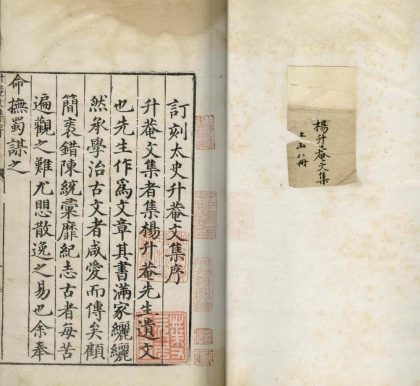 楊升菴文集
八冊
訂刻太史升菴文集序
升菴文集者集楊升菴先生遺文
也先生作爲文章其書滿家纚纚
然承學治古文者咸愛而傳矣顧
簡袠錯陳統彚靡紀志古者每苦
遍觀之難尤散逸之易也余奉
命撫蜀謀之